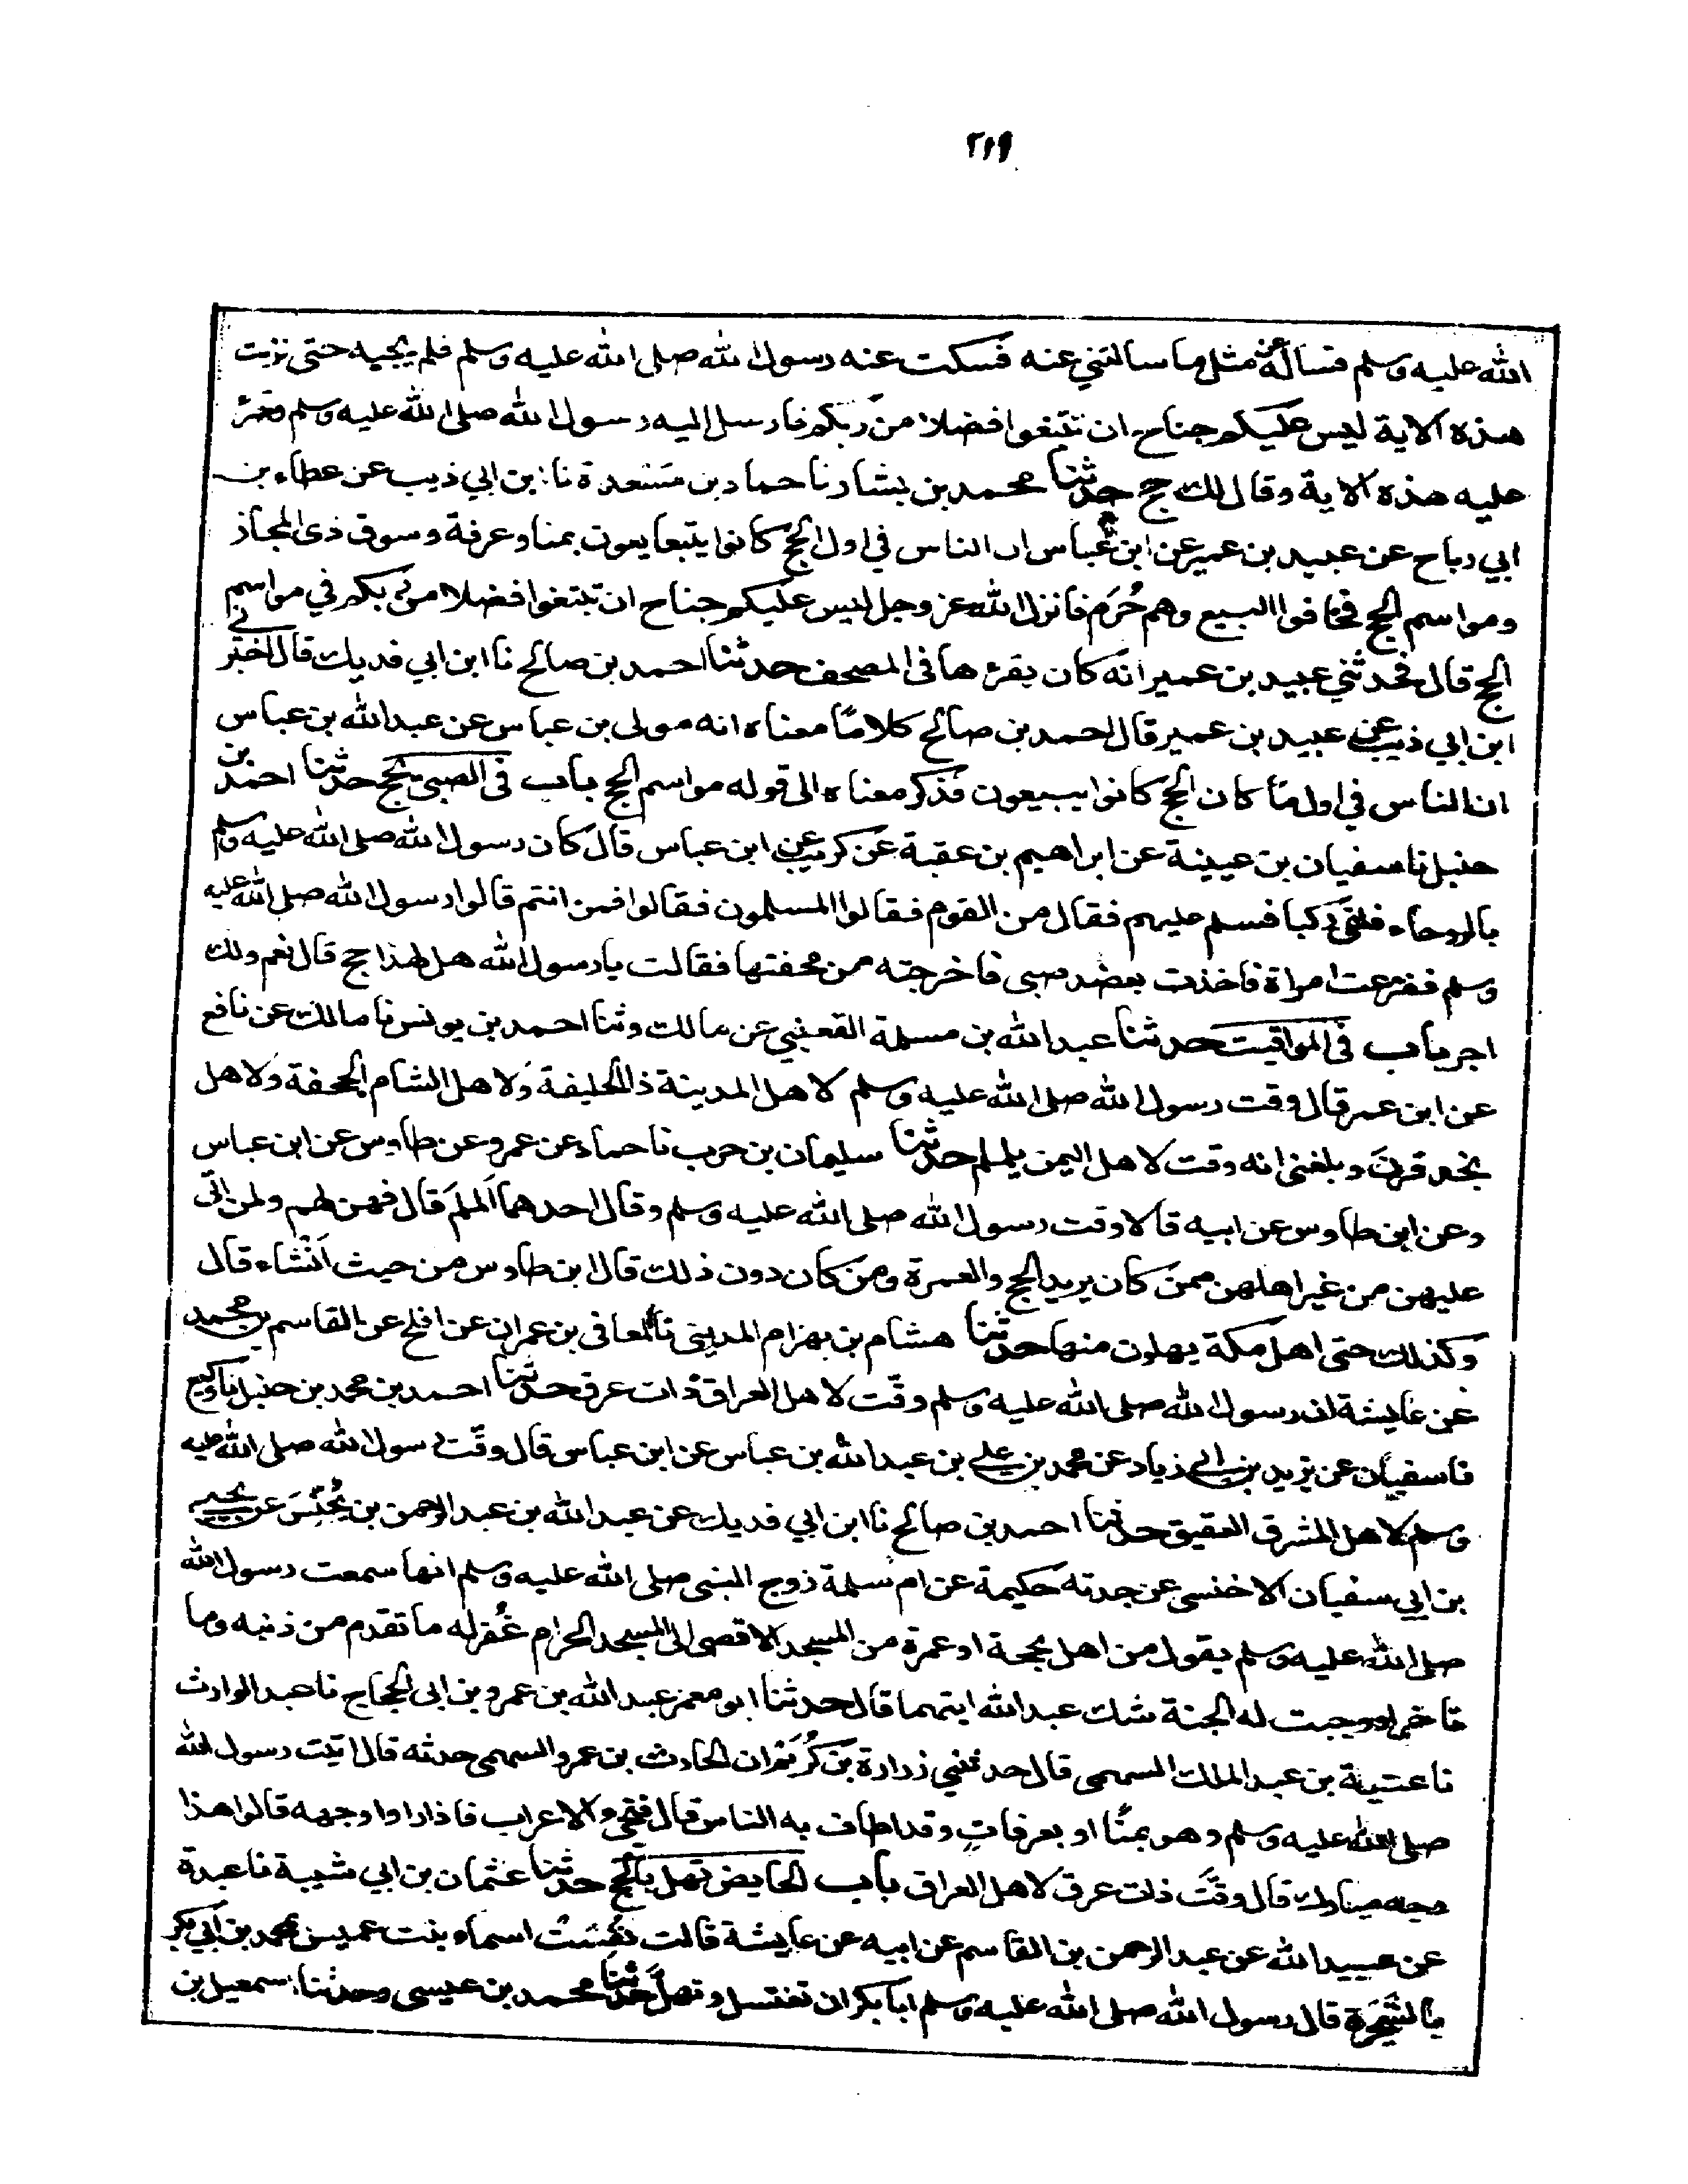 ٢١٩
الله عليه وسلم فسأله عن مثل ما سالتني عنه فسكت عنه رسول الله صلى الله عليه وسلم فلم يجيبه حتى نزلت
هذه الاية ليس عليكم جناح ان تبتغوا فضلا من ربكم فارسل اليه رسول الله صلى الله عليه وسلم وقرئ
عليه هذه الاية وقال لك حج حدثنا محمد بن بشار نا حماد بن مسعدة نا ابن ابي ذيب عن عطاء بن
ابي رباح عن عبيد بن عمير عن ابن عباس ان الناس في اول الحج كانوا يتبعايعون بمنا وعرفة وسوق ذى المجاز
ومواسم الحج فخافوا البيع وهم حُرَم فانزل الله عز وجل ليس عليكم جناح ان تبتغوا فضلا من ربكم في مواسم
الحج قال فحدثني عبيد بن عمير انه كان يقرئها في المصحف حدثنا احمد بن صالح نا ابن ابي فديك قال اخبرني
ابن ابي ذيب عن عبيد بن عمير قال احمد بن صالح كلامًا معناه انه مولى بن عباس عن عبد الله بن عباس
ان الناس في اول ما كان الحج كانوا يبيعون فذكر معناه الى قوله مواسم الحج باب في الصبي يحج حدثنا احمد بن
حنبل نا سفيان بن عيينة عن ابراهيم بن عقبة عن كريب عن ابن عباس قال كان رسول الله صلى الله عليه وسلم
بالروحاء فلقي ركبا فسلم عليهم فقال من القوم فقالوا المسلمون فقالوا فمن انتم قالوا رسول الله صلى الله عليه
وسلم ففزعت امراة فاخذت بعضد صبى فاخرجته من محفتها فقالت يا رسول الله هل لهذا حج قال نعم ولك
اجر باب في المواقيت حدثنا عبد الله بن مسلمة القعنبي عن مالك وثنا احمد بن يونس نا مالك عن نافع
عن ابن عمر قال وقت رسول الله صلى الله عليه وسلم لاهل المدينة ذا الحليفة ولاهل الشام الجحفة ولاهل
نجد قرن وبلغني انه وقت لاهل اليمن يلملم حدثنا سليمان بن حرب نا حماد عن عمرو عن طاوس عن ابن عباس
وعن ابن طاوس عن ابيه قالا وقت رسول الله صلى الله عليه وسلم وقال احدهما الملم قال فهن لهم ولمن اتى
عليهن من غير اهلهن ممن كان يريد الحج والعمرة ومن كان دون ذلك قال ابن طاوس من حيث اَنْشاء قال
وكذلك حتى اهل مكة يهلون منها حدثنا هشام بن بهزام المديني نا المعافى بن عمران عن افلح عن القاسم بن محمد
عن عايشة ان رسول الله صلى الله عليه وسلم وقّت لاهل العراق ذات عرق حدثنا احمد بن محمد بن حنبل نا وكيع
نا سفيان عن يزيد بن ابي زياد عن محمد بن علي بن عبد الله بن عباس عن ابن عباس قال وقّت رسول الله صلى الله عليه
وسلم لاهل المشرق العقيق حدثنا احمد بن صالح نا ابن ابي فديك عن عبد الله بن عبد الرحمن بن يُحَنّسَ عن يحيى
بن ابي سفيان الاخنسي عن جدته حكيمة عن ام سلمة زوج النبي صلى الله عليه وسلم انها سمعت رسول الله
صلى الله عليه وسلم يقول من اهل بحجة او عمرة من المسجد الاقصى الى المسجد الحرام غُفر له ما تقدم من ذنبه وما
تاخر او وجبت له الجنة شك عبد الله ايتهما قال حدثنا ابو معمر عبد الله بن عمرو بن ابي الحجاج نا عبد الوارث
نا عتبة بن عبد الملك السهمى قال حدثني زرارة بن كُرَيم ان الحارث بن عمرو السهمى حدثه قال اتيت رسول الله
صلى الله عليه وسلم وهو بمنًا او بعرفاتٍ وقد اطاف به الناس قال فتجئ الاعراب فاذا راوا وجهه قالوا هذا
وجه مبارك قال وقَّتَ ذات عرق لاهل العراق باب الحايض تهل بالحج حدثنا عثمان بن ابي شيبة نا عبدة
عن عبيد الله عن عبد الرحمن بن القاسم عن ابيه عن عايشة قالت نُفِسَتْ اسماء بنت عميس بمحمد بن ابي بكر
بالشَجَرَة قال رسول الله صلى الله عليه وسلم ابا بكر ان تغتسل وتهلَّ حدثنا محمد بن عيسى وحدثنا اسمعيل بن